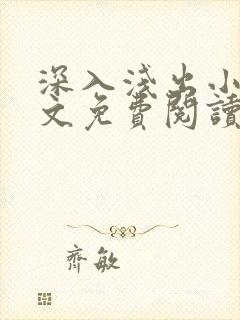 深入淺出小
文免費閱讀
齊敏